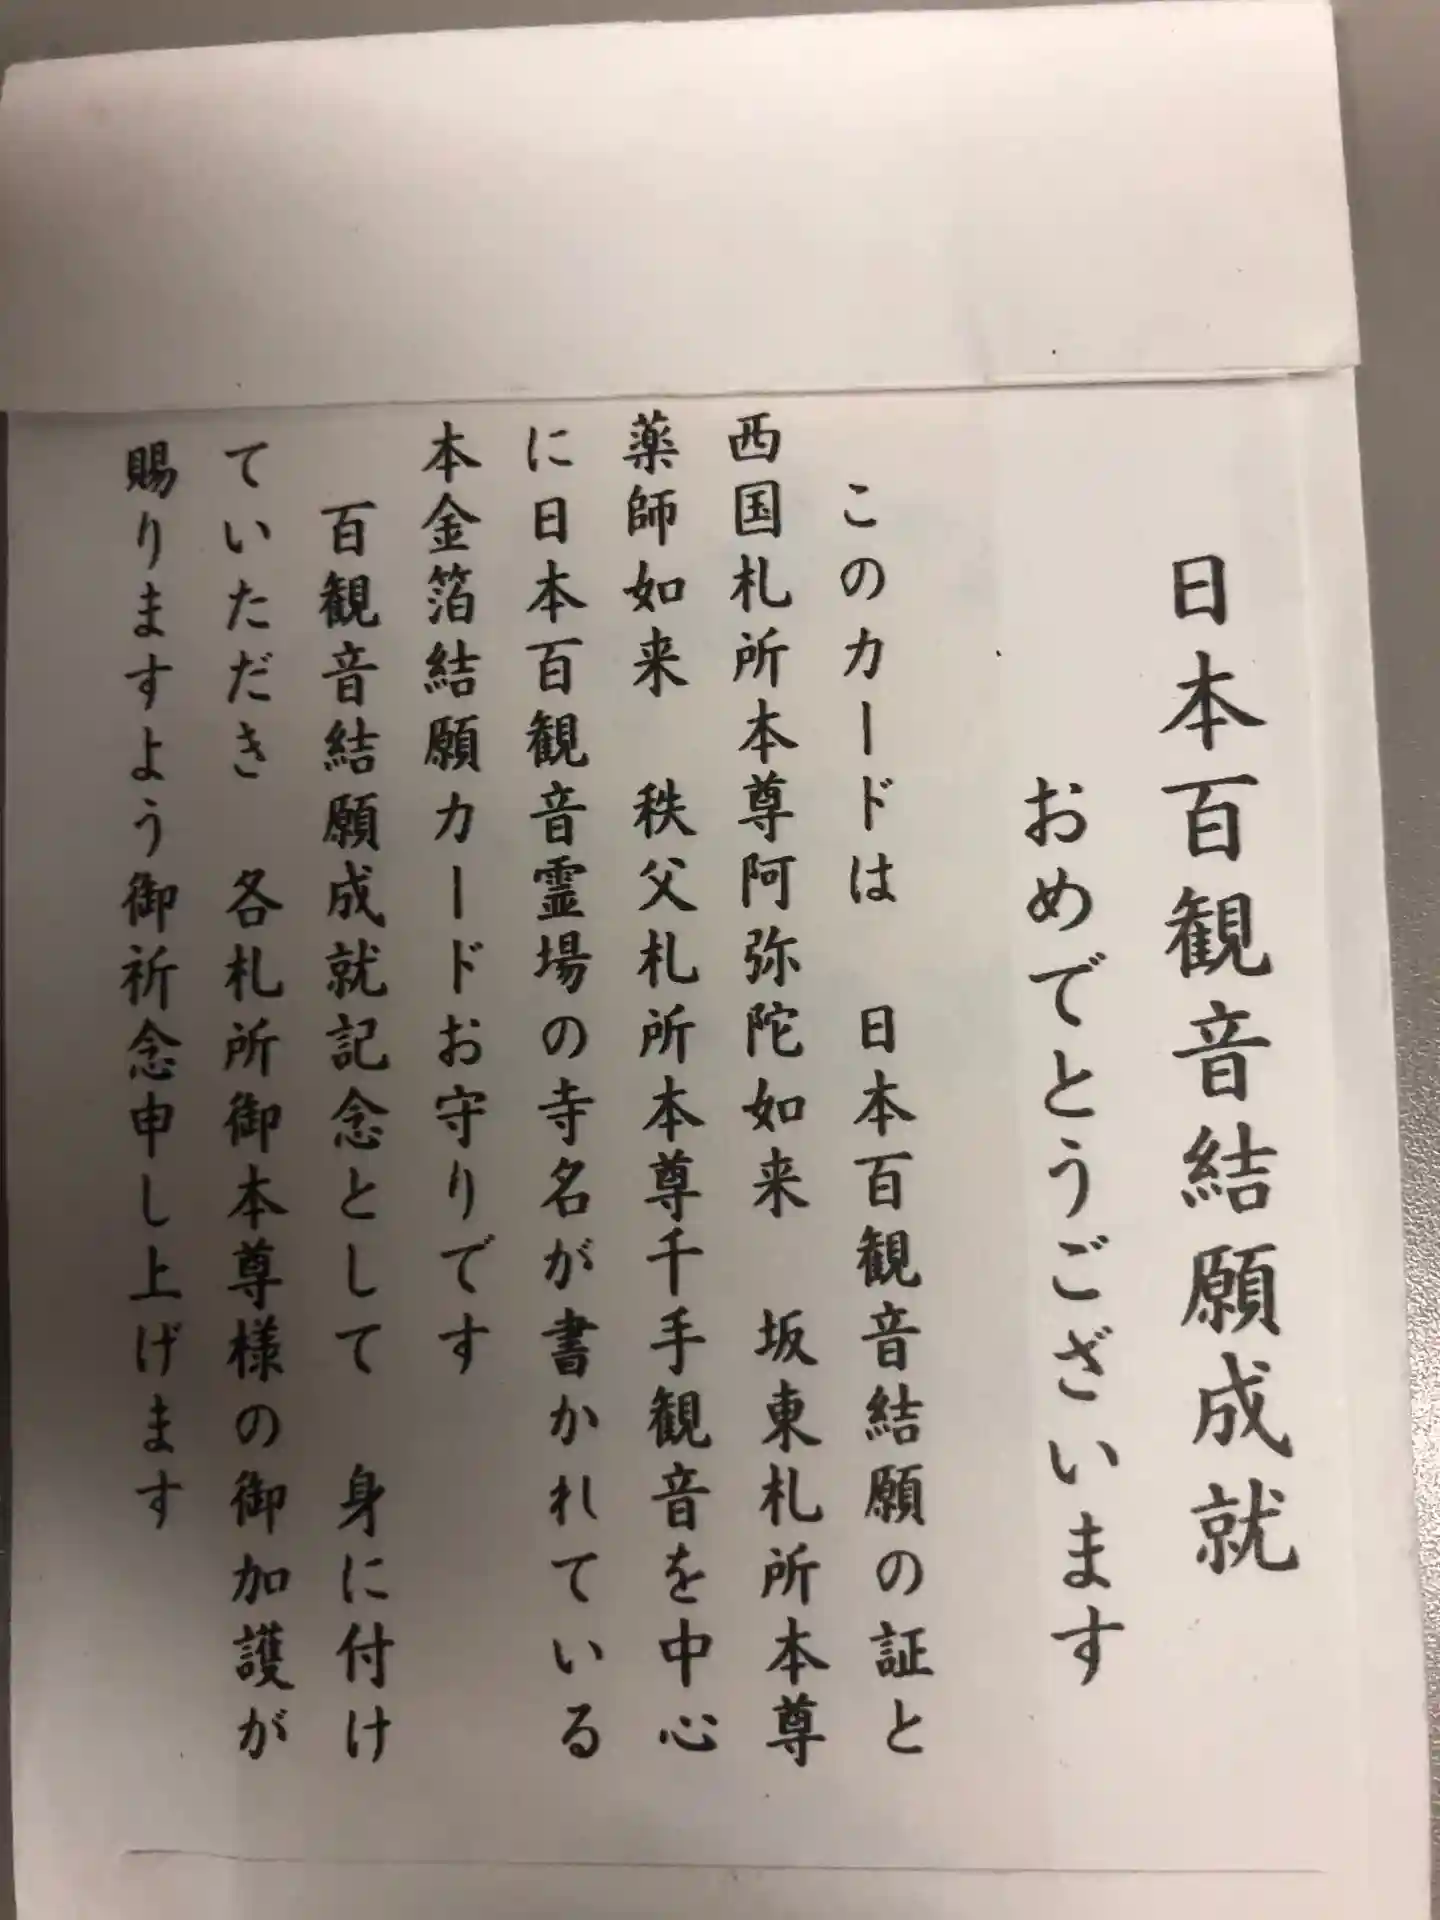 日本百観音結願成就
おめでとうございます
このカードは　日本百観音結願の証と
西国札所本尊阿弥陀如来　坂東札所本尊
薬師如来　秩父札所本尊千手観音を中心
に日本百観音霊場の寺名が書かれている
本金箔結願カードお守りです
百観音結願成就記念として　身に付け
ていただき　各札所御本尊様の御加護が
賜りますよう御祈念申し上げます